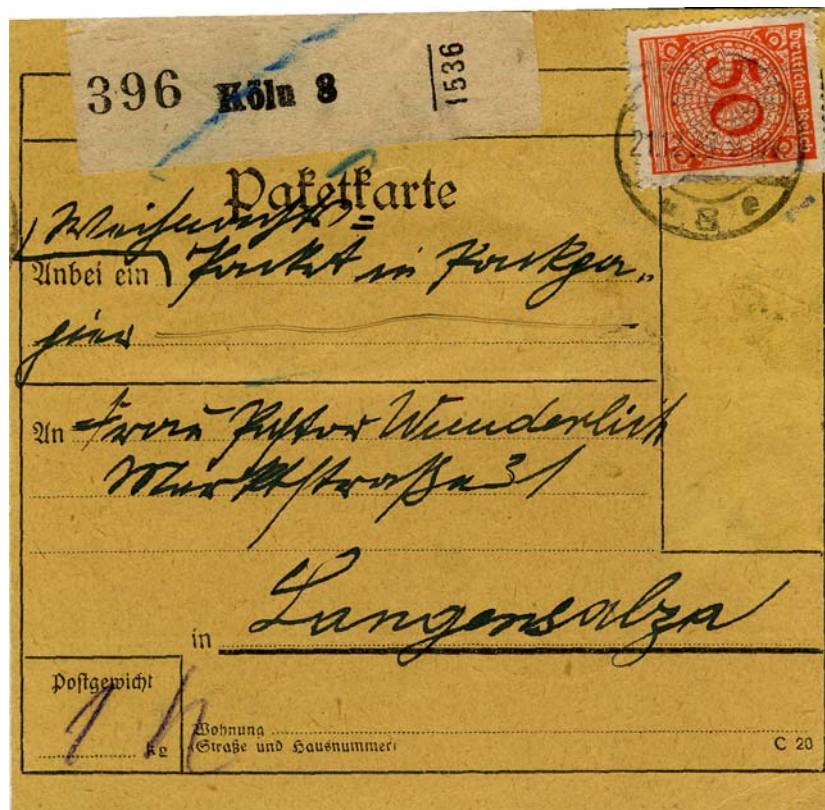 396 Köln 8 1536
50
Deutsches Reich
21.12.
Paketkarte
Weihnachts=
Anbei ein Packet in Packpa„
pier
An Frau Pastor Wunderlich
Marktstraße 31
in Langensalza
Postgewicht
1 kg
Wohnung
(Straße und Hausnummer)
C 20